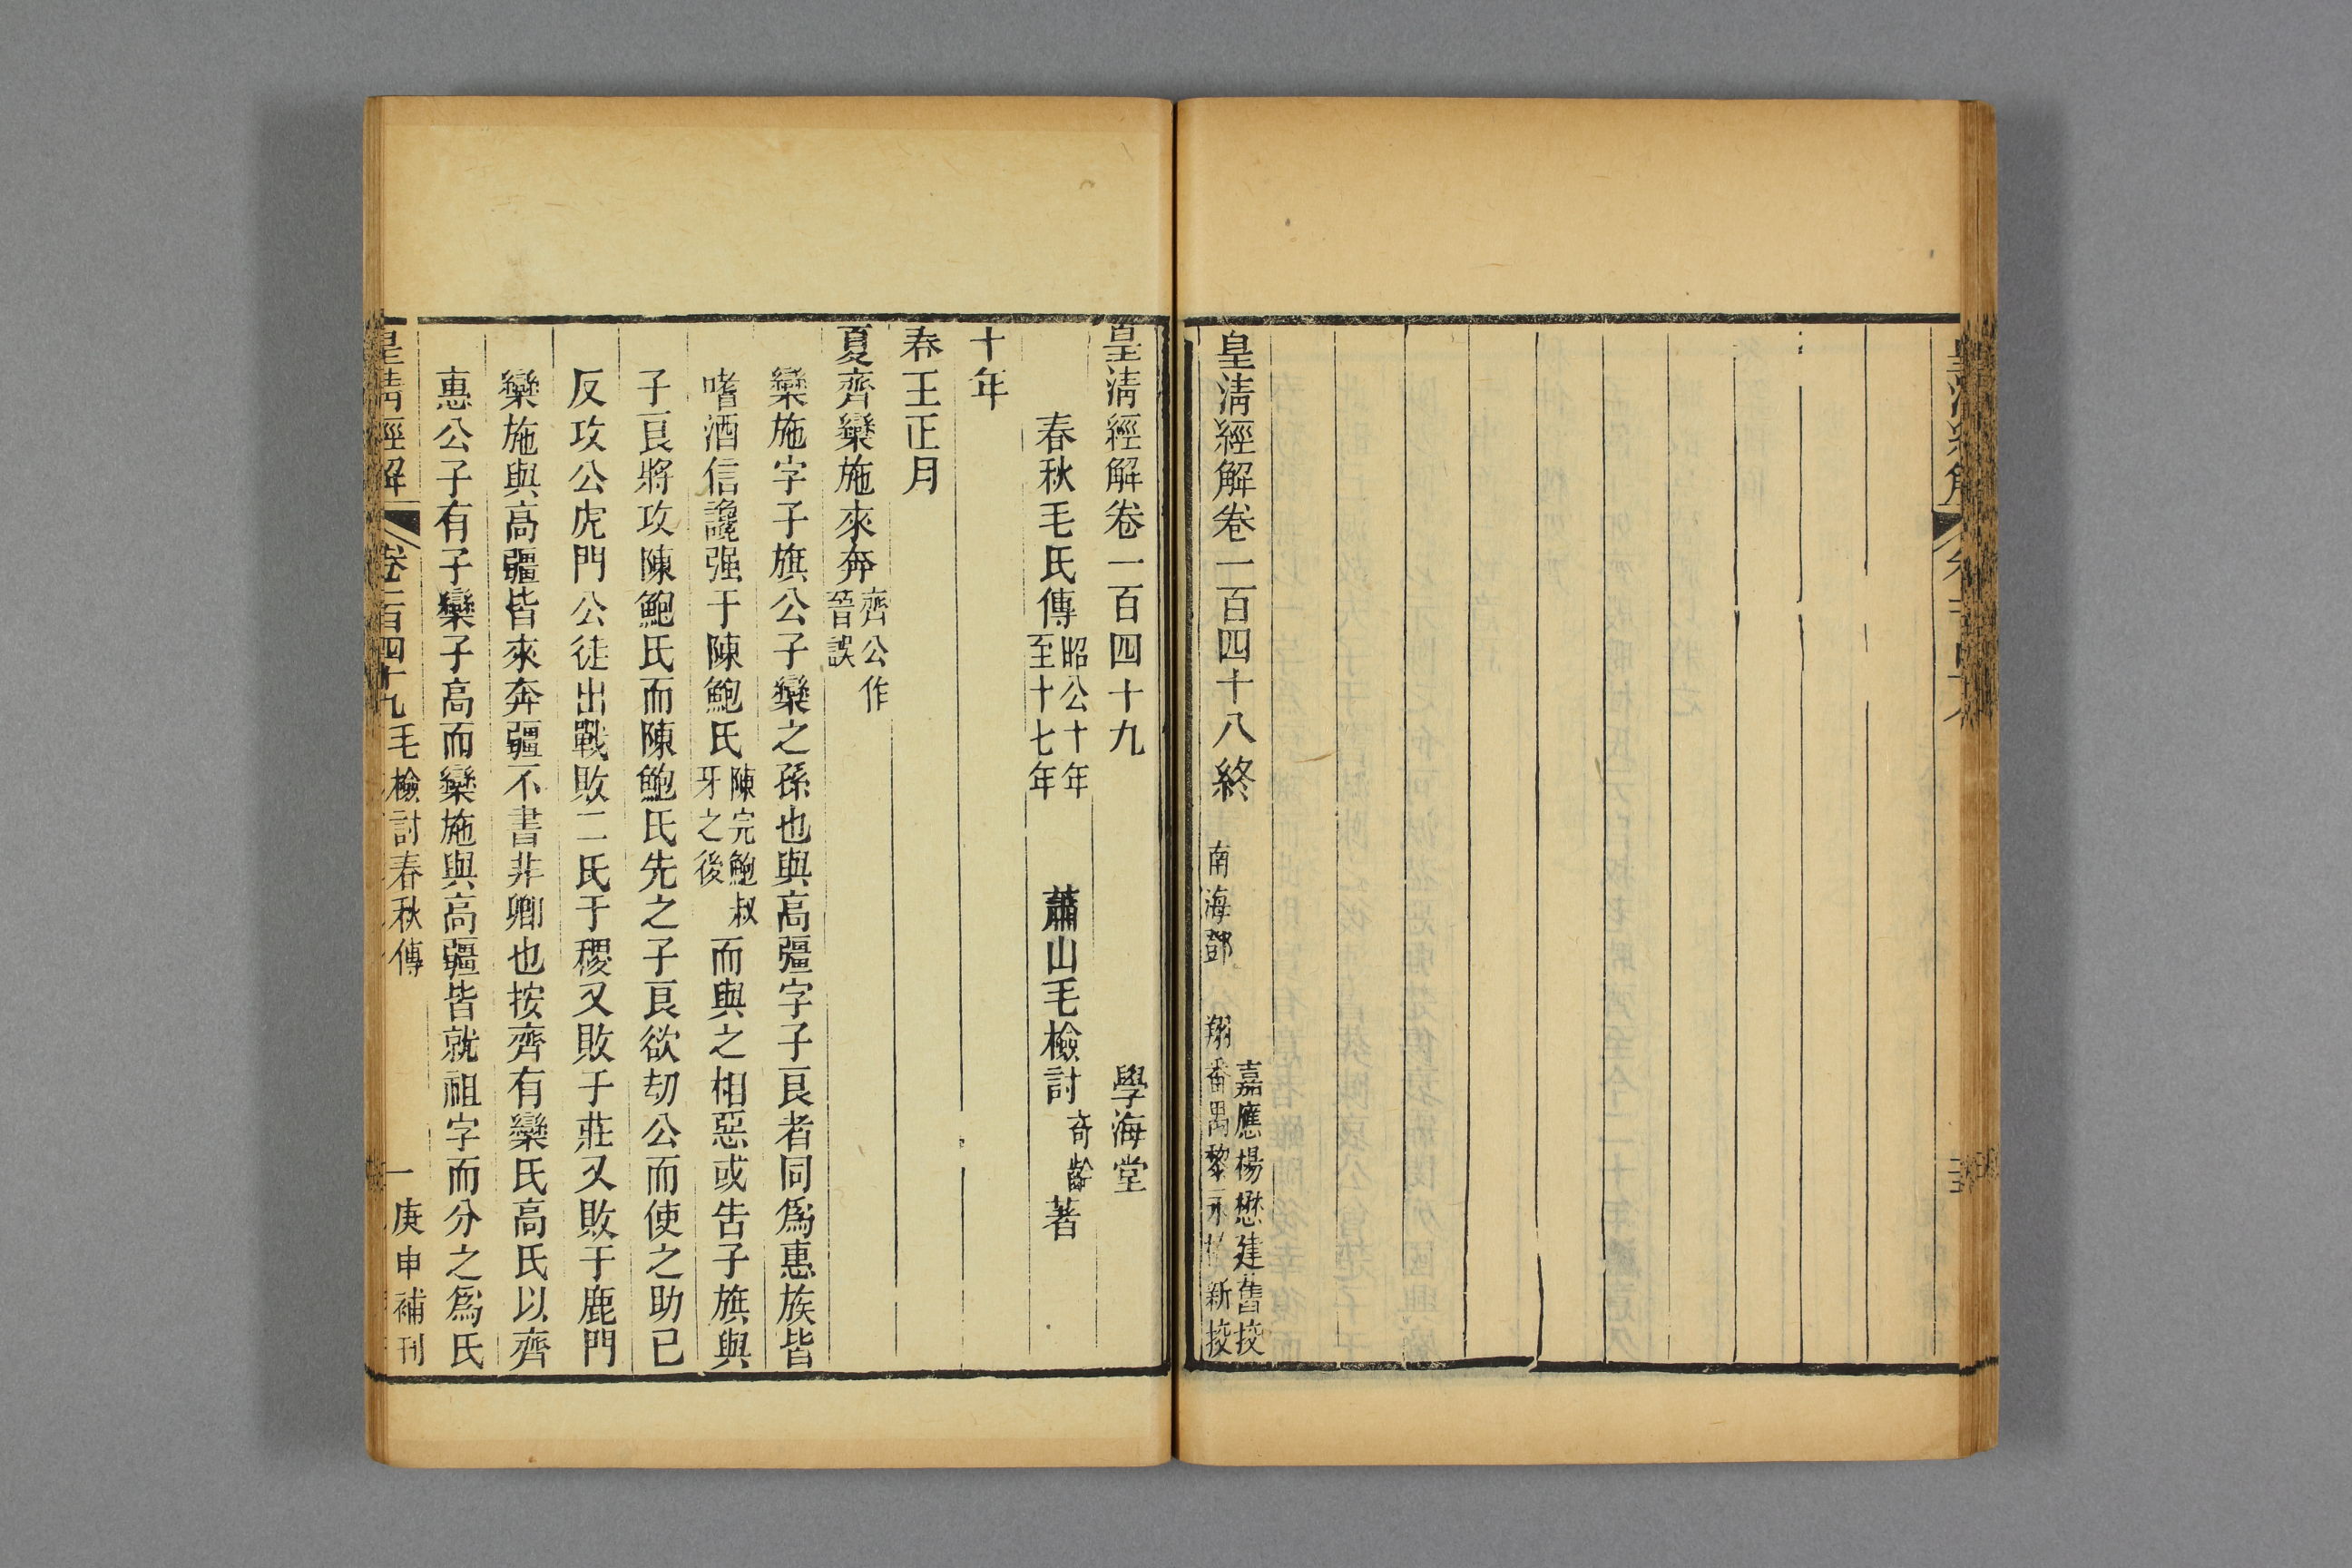 皇清經解卷一百四十八終
嘉應楊懋建舊挍
南海鄧翔
番禺黎永椿新挍
皇清經解卷一百四十九 學海堂
春秋毛氏傳昭公十年至十七年 蕭山毛檢討奇齡著
十年
春王正月
夏齊欒施來奔齊公作晉誤
欒施字子旗公子欒之孫也與高彊字子良者同爲惠族皆
嗜酒信讒强于陳鮑氏陳完鮑叔牙之後而與之相惡或告子旗與
子良將攻陳鮑氏而陳鮑氏先之子良欲刧公而使之助已
反攻公虎門公徒出戰敗二氏于稷又敗于莊又敗于鹿門
欒施與高疆皆來奔疆不書非卿也按齊有欒氏高氏以齊
惠公子有子欒子高而欒施與高疆皆就祖字而分之爲氏
皇清經解 卷一百四十九毛檢討春秋傳 一 庚申補刊